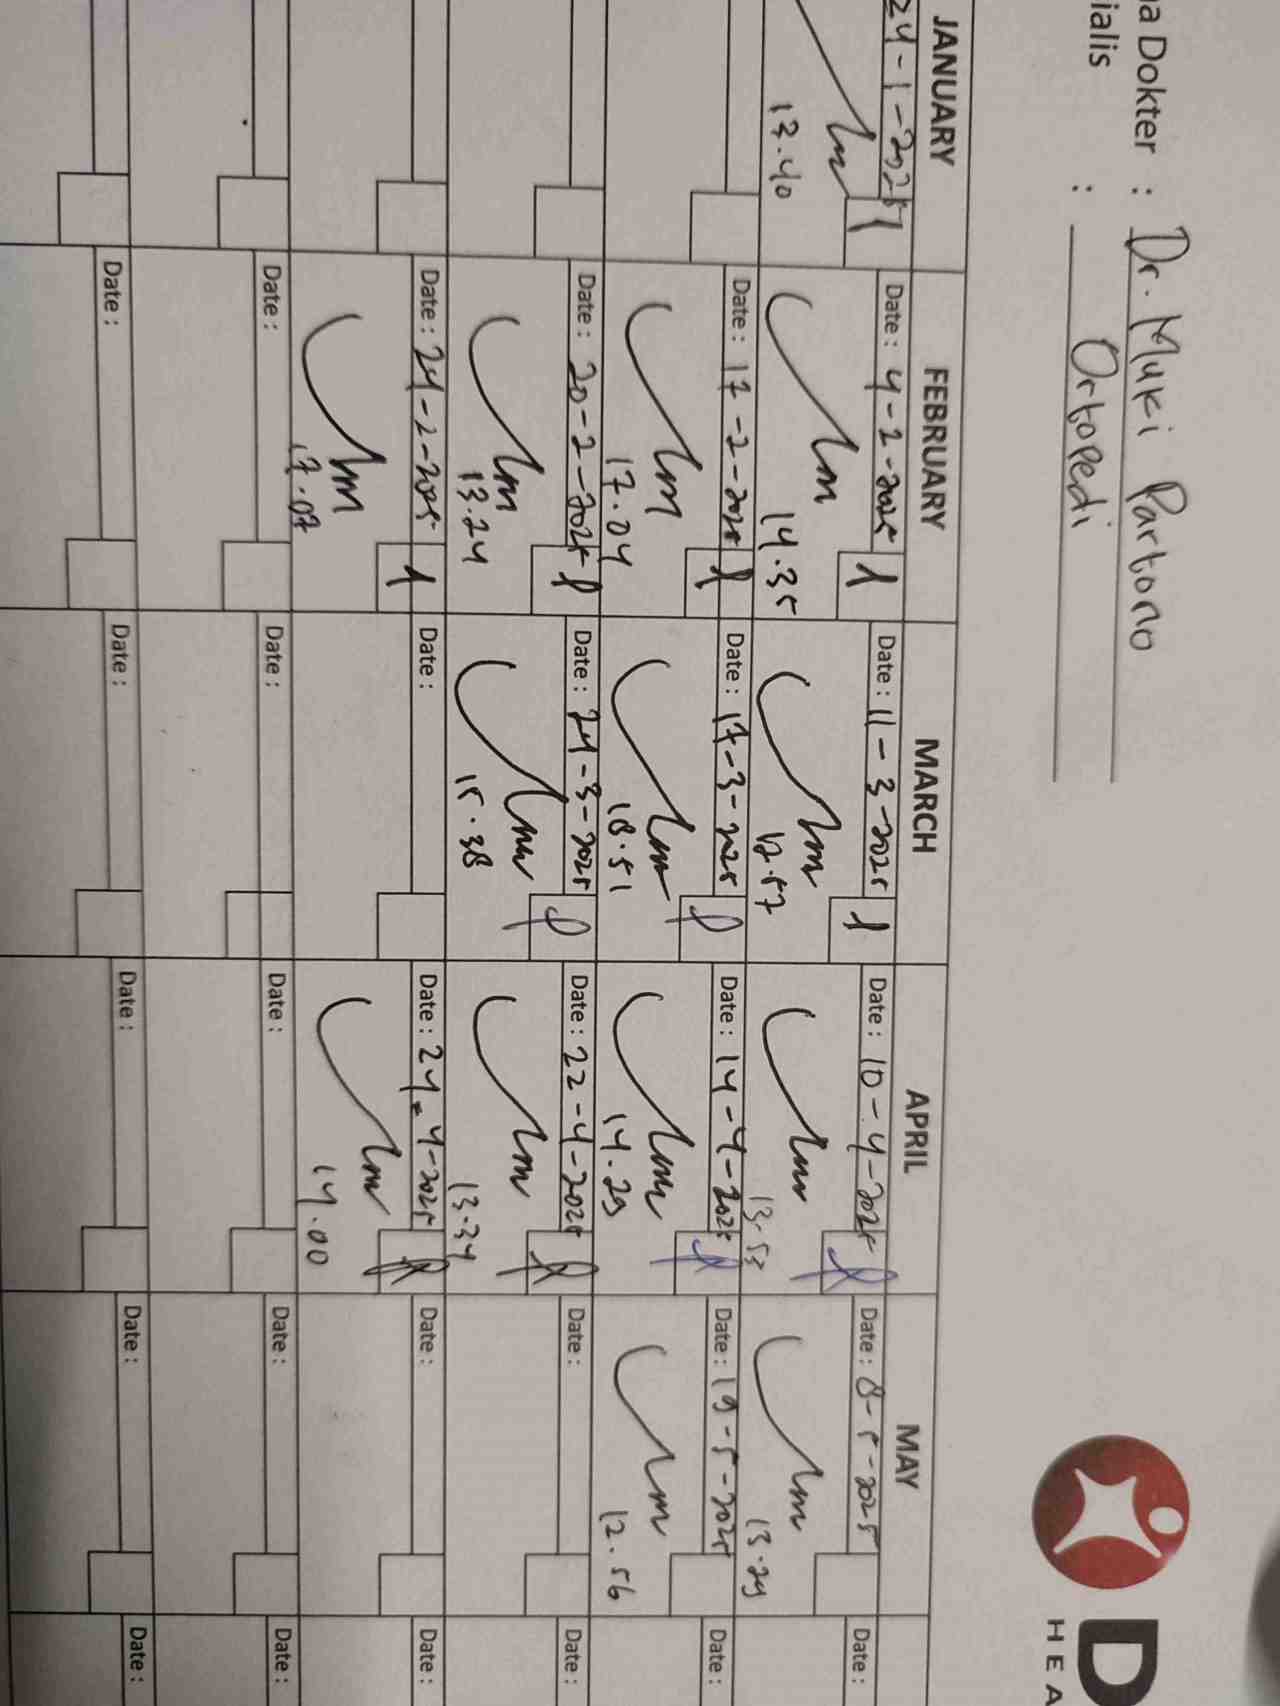 Dokter : Dr. Muki Partono
ialis : Ortopedi
D
HEA
JANUARY FEBRUARY MARCH APRIL MAY
24-1-2025 Date : 4-2-2025 Date : 11-3-2025 Date : 10-4-2025 Date : 8-5-2025 Date :
13.40 14.35 12.57 13.53 13.29
Date : 17-2-2025 Date : 17-3-2025 Date : 14-4-2025 Date : 19-5-2025 Date :
17.04 18.51 14.29 12.56
Date : 20-2-2025 Date : 24-3-2025 Date : 22-4-2025 Date : Date :
13.24 15.38 13.34
Date : 24-2-2025 Date : Date : 24-4-2025 Date : Date :
17.07 14.00
Date : Date : Date : Date : Date :
Date : Date : Date : Date : Date :